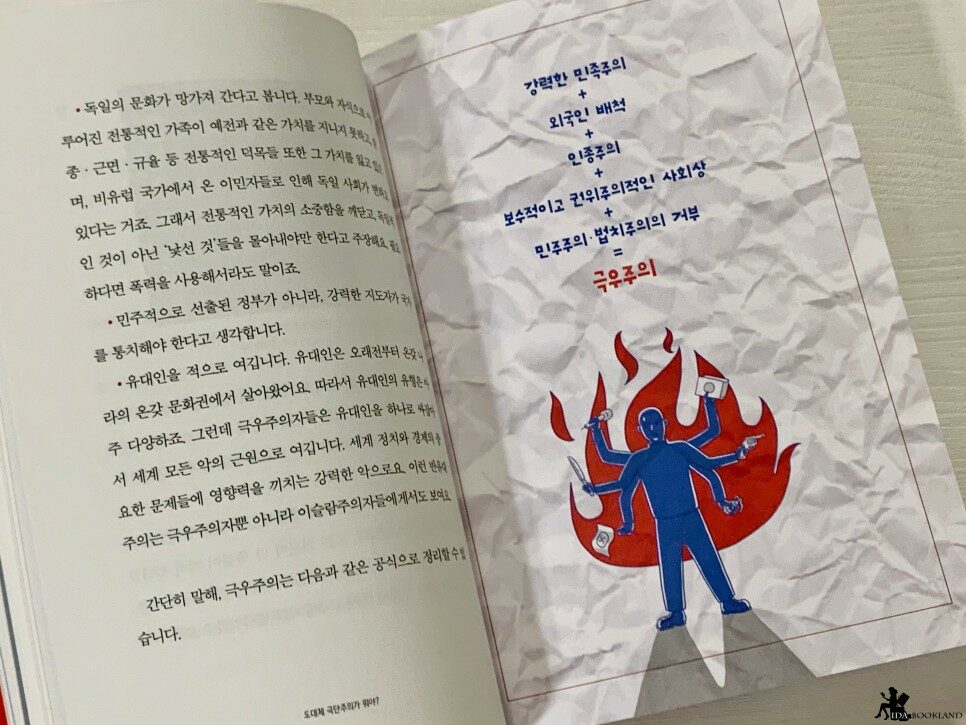 • 독일의 문화가 망가져 간다고 봅니다. 부모와 자식으로
루어진 전통적인 가족이 예전과 같은 가치를 지니지 못하고,
종·근면·규율 등 전통적인 덕목들 또한 그 가치를 잃고
며, 비유럽 국가에서 온 이민자들로 인해 독일 사회가 변하고
있다는 거죠. 그래서 전통적인 가치의 소중함을 깨닫고, 독일적
인 것이 아닌 ‘낯선 것’들을 몰아내야만 한다고 주장해요. 필요
하다면 폭력을 사용해서라도 말이죠.
• 민주적으로 선출된 정부가 아니라, 강력한 지도자가 국가
를 통치해야 한다고 생각합니다.
• 유대인을 적으로 여깁니다. 유대인은 오래전부터 온갖 나
라의 온갖 문화권에서 살아왔어요. 따라서 유대인의 유형은 아
주 다양하죠. 그런데 극우주의자들은 유대인을 하나로 싸잡아
서 세계 모든 악의 근원으로 여깁니다. 세계 정치와 경제의 중
요한 문제들에 영향력을 끼치는 강력한 악으로요. 이런 반유대
주의는 극우주의자뿐 아니라 이슬람주의자들에게서도 보여요.
간단히 말해, 극우주의는 다음과 같은 공식으로 정리할 수 있
습니다.
도대체 극단주의가 뭐야?
강력한 민족주의
+
외국인 배척
+
인종주의
+
보수적이고 권위주의적인 사회상
+
민주주의·법치주의의 거부
=
극우주의
IDA BOOKLAND